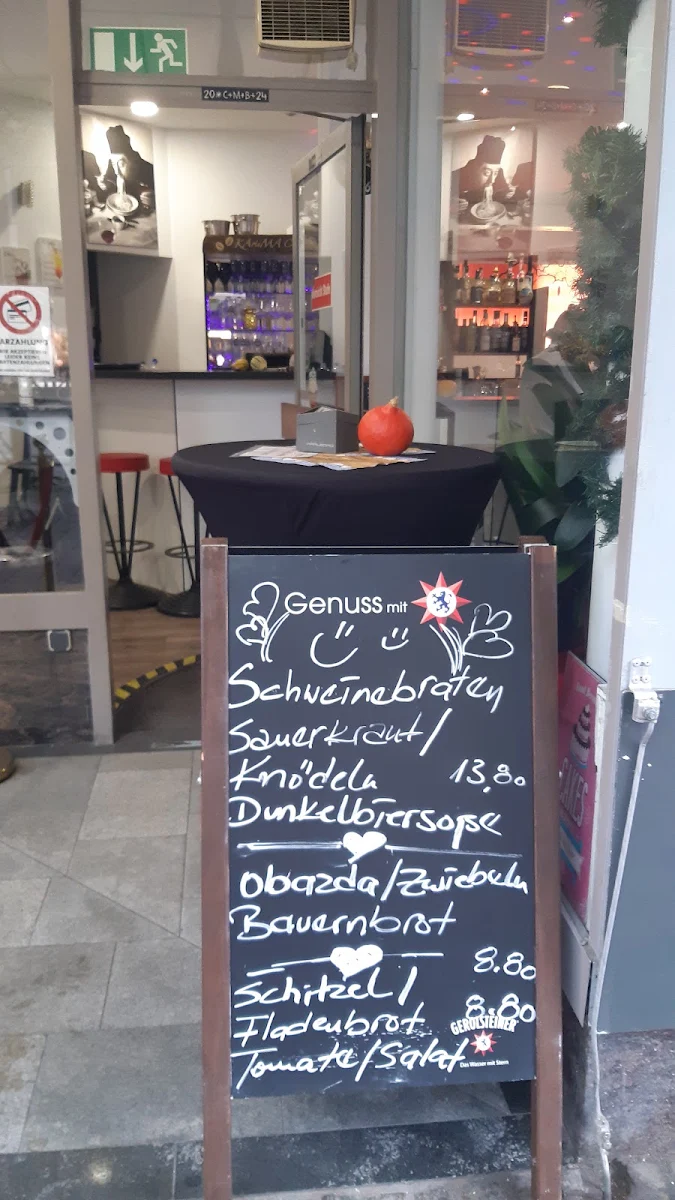 20*C+M+B+24
KARMA
ARZAHLUNG
Genuss mit
Schweinebraten
Sauerkraut/
Knödeln 13,80
Dunkelbiersoße
Obazda/Zwiebeln
Bauernbrot
8.80
Schitzel/
8.80
Fladenbrot
GEROLSTEINER
Tomate/Salat
Das Wasser mit Stern
CAKES